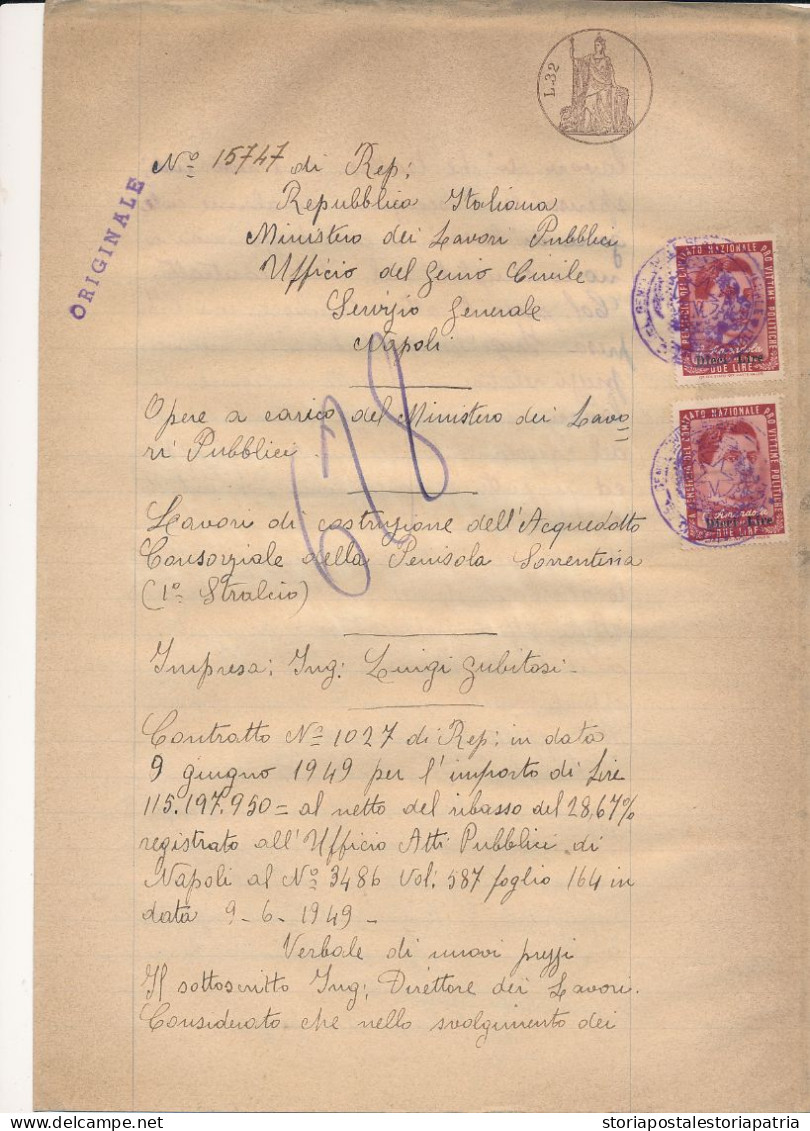 L. 32
ORIGINALE
Nº 15747 di Rep:
Repubblica Italiana
Ministero dei Lavori Pubblici
Ufficio del Genio Civile
Servizio Generale
Napoli
678
Opere a carico del Ministero dei Lavo
ri Pubblici
Lavori di costruzione dell'Acquedotto
Consorziale della Penisola Sorrentina
(1º Stralcio)
Impresa: Ing: Luigi Gubitosi.
Contratto Nº 1027 di Rep: in data
9 giugno 1949 per l'importo di Lire
115.197.950= al netto del ribasso del 28,67%
registrato all'Ufficio Atti Pubblici di
Napoli al Nº 3486 Vol: 587 foglio 164 in
data 9-6-1949-
Verbale di nuovi prezzi
Il sottoscritto Ing: Direttore dei Lavori.
Considerato che nello svolgimento dei
NAZIONALE PRO VITTIME POLITICHE
Dieci Lire
DUE LIRE
A BENEFICIO DEL COMITATO NAZIONALE PRO VITTIME POLITICHE
Amendola
Dieci Lire
DUE LIRE
storiapostalestoriapatria